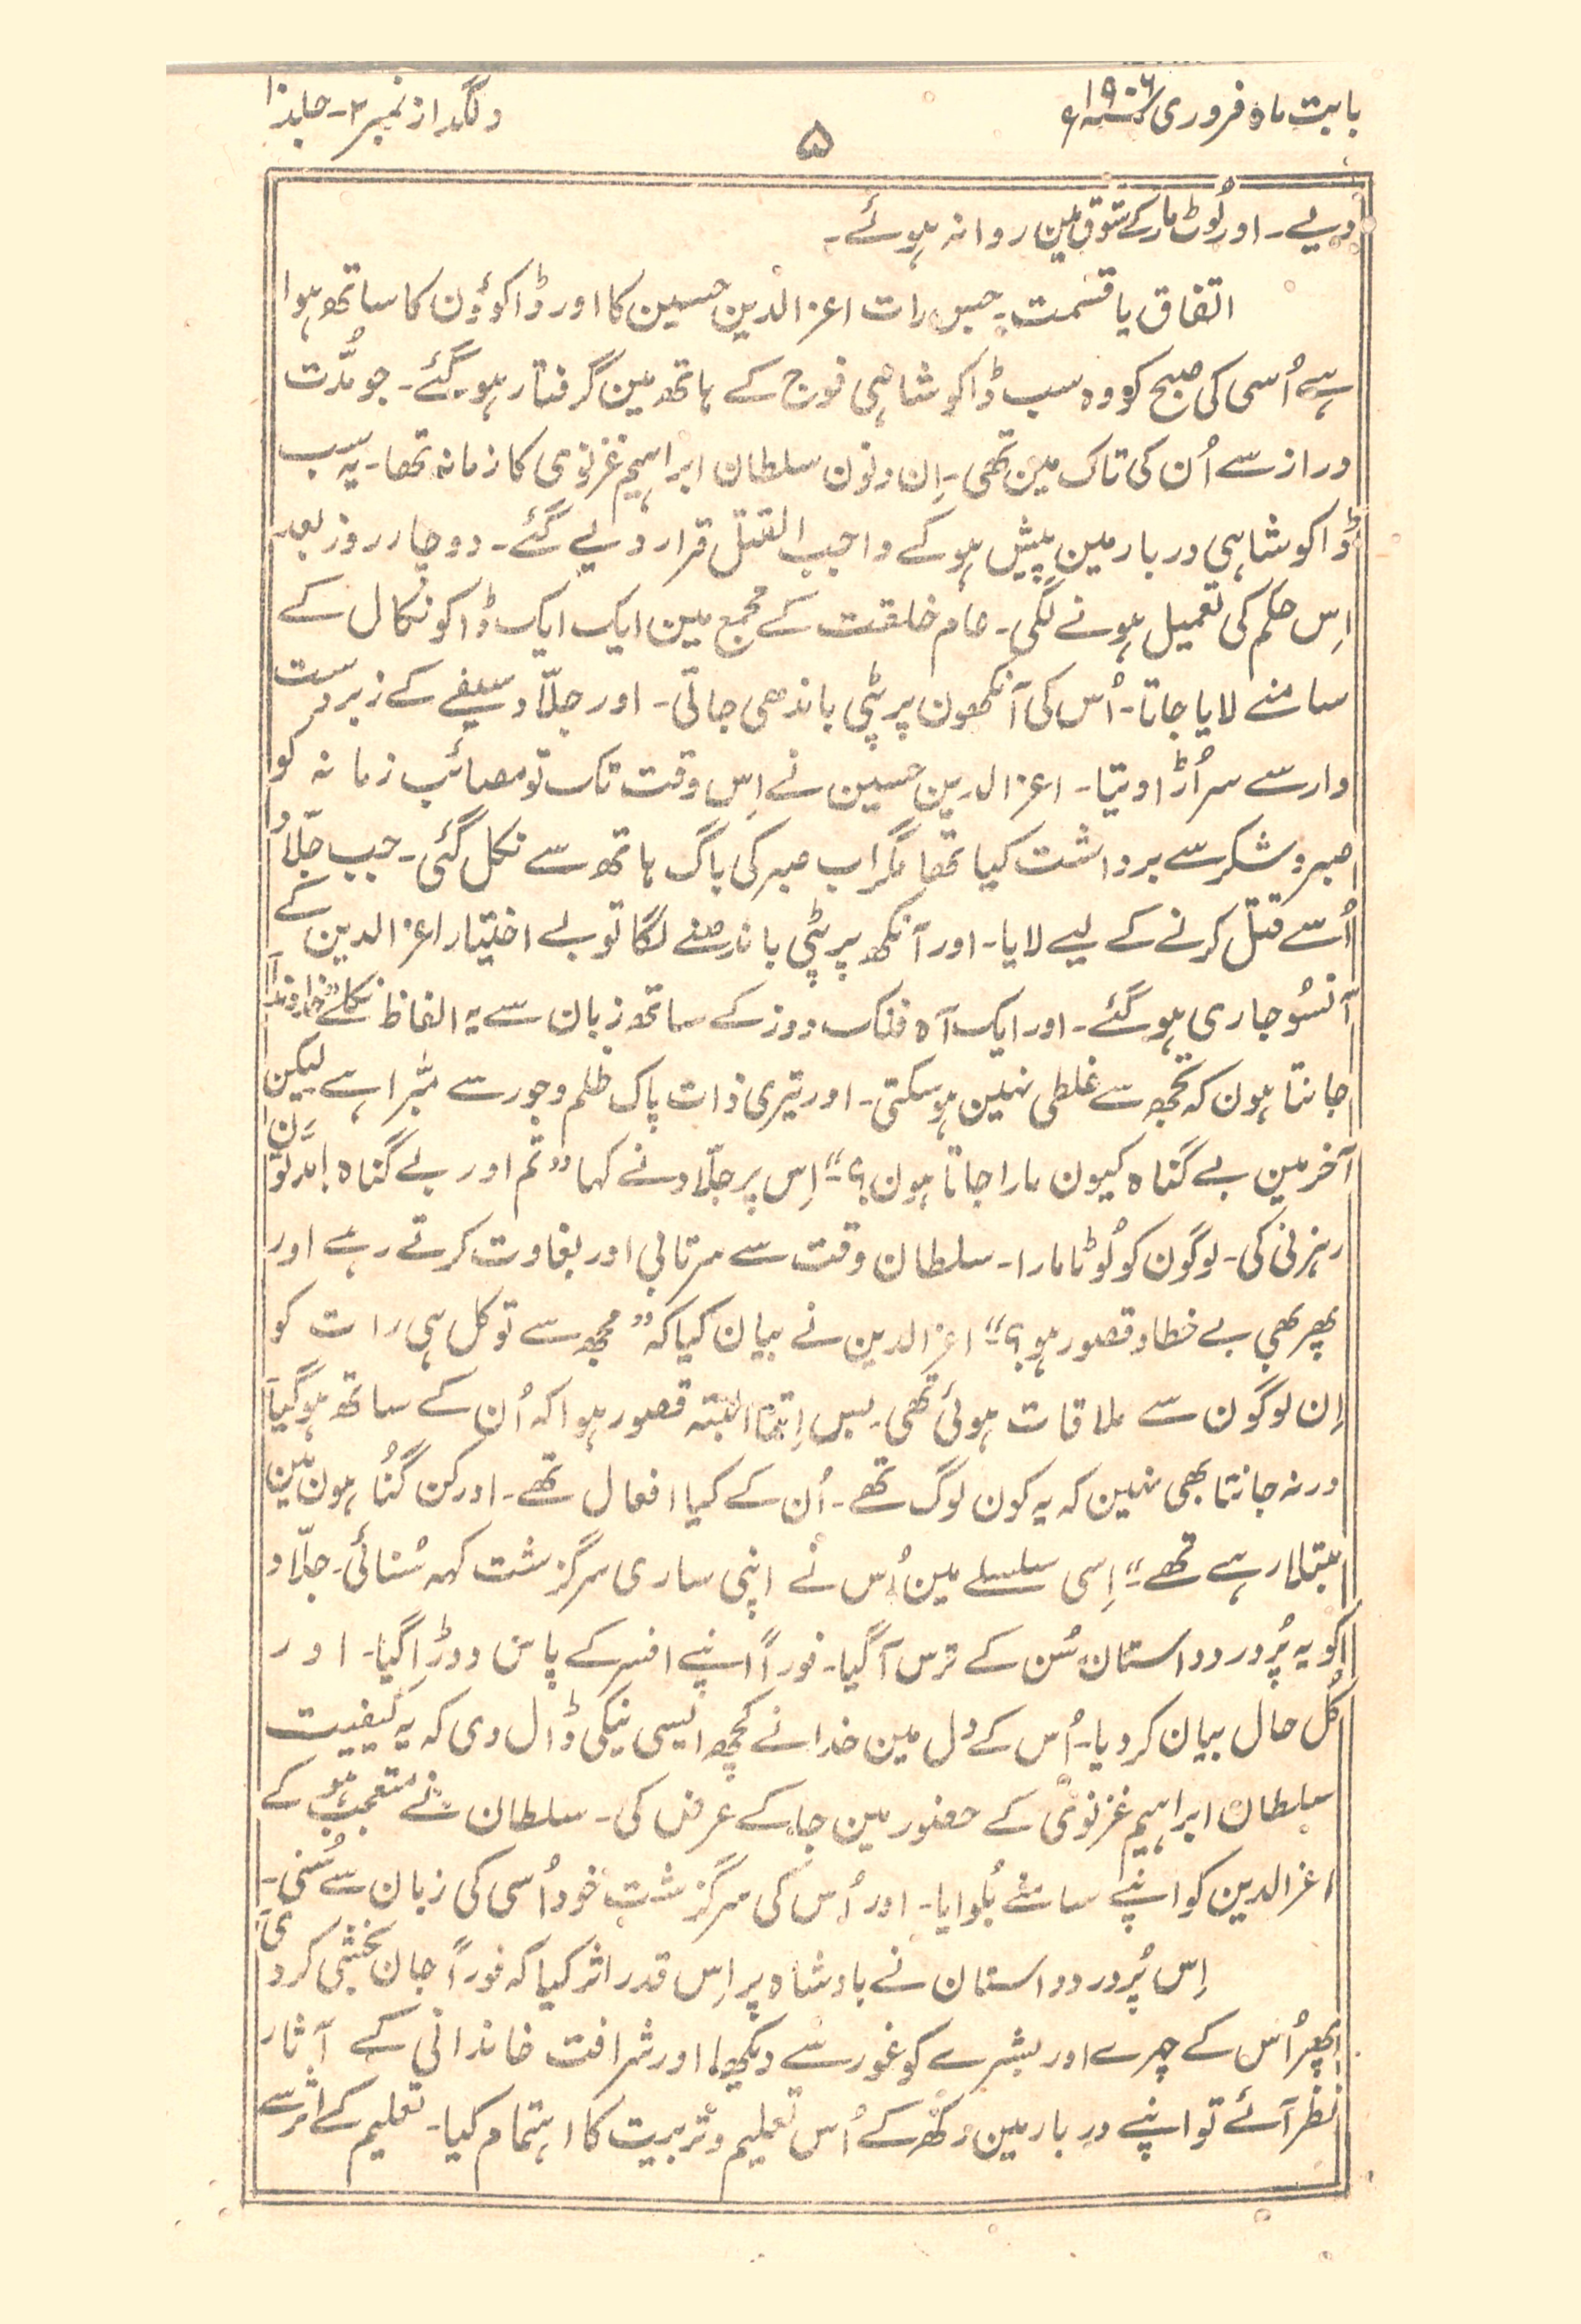 بابت ماہ فروری ۱۹۰۶ء
۵
دلگداز نمبر ۲ - جلد ۱۰
دیے۔ اور لُوٹ مار کے شوق مین روانہ ہوئے۔
اتفاق یا قسمت۔ جس رات اعز الدین حسین کا اور ڈاکوؤن کا ساتھ ہوا
ہے اُسی کی صبح کو وہ سب ڈاکو شاہی فوج کے ہاتھ مین گرفتار ہو گئے۔ جو مُدّت
دراز سے اُن کی تاک مین تھی۔ اِن دنون سلطان ابراہیم غزنوی کا زمانہ تھا۔ یہ سب
ڈاکو شاہی دربار مین پیش ہو کے واجب القتل قرار دیے گئے۔ دو چار روز بعد
اِس حکم کی تعمیل ہونے لگی۔ عام خلقت کے مجمع مین ایک ایک ڈاکو نکال کے
سامنے لایا جاتا۔ اُس کی آنکھون پر پٹی باندھی جاتی۔ اور جلّاد سیفے کے زبردست
وار سے سر اُڑا دیتا۔ اعز الدین حسین نے اِس وقت تک تو مصائب زمانہ کو
صبر و شکر سے برداشت کیا تھا مگر اب صبر کی باگ ہاتھ سے نکل گئی۔ جب جلّاد
اُسے قتل کرنے کے لیے لایا۔ اور آنکھ پر پٹی باندھنے لگا تو بے اختیار اعز الدین کے
آنسُو جاری ہو گئے۔ اور ایک آہ فلک دوز کے ساتھ زبان سے یہ الفاظ نکلے ”خداوندا
جانتا ہون کہ تجھ سے غلطی نہین ہو سکتی۔ اور تیری ذات پاک ظلم و جور سے مبّرا ہے لیکن
آخر مین بے گناہ کیون مارا جاتا ہون؟“ اِس پر جلّاد نے کہا ”تم اور بے گناہ! مدتون
رہزنی کی۔ لوگون کو لُوٹا مارا۔ سلطان وقت سے سرتابی اور بغاوت کرتے رہے اور
پھر بھی بے خطا و قصور ہو؟“ اعز الدین نے بیان کیا کہ ”مجھ سے تو کل ہی رات کو
اِن لوگون سے ملاقات ہوئی تھی۔ بس اِتنا البتہ قصور ہوا کہ اُن کے ساتھ ہو گیا
ورنہ جانتا بھی نہین کہ یہ کون لوگ تھے۔ اُن کے کیا افعال تھے۔ اور کن گُناہون مین
مبتلا رہے تھے۔“ اِسی سلسلے مین اُس نے اپنی ساری سرگزشت کہہ سُنائی۔ جلّاد
کو یہ پُر درد داستان سُن کے ترس آ گیا۔ فوراً اپنے افسر کے پاس دوڑا گیا۔ اور
کُل حال بیان کر دیا۔ اُس کے دل مین خدا نے کچھ ایسی نیکی ڈال دی کہ یہ کیفیت
سلطان ابراہیم غزنوی کے حضور مین جا کے عرض کی۔ سلطان نے متعجب ہو کے
اعز الدین کو اپنے سامنے بُلوایا۔ اور اُس کی سرگزشت خود اُسی کی زبان سے سُنی۔
اِس پُر درد داستان نے بادشاہ پر اِس قدر اثر کیا کہ فوراً جان بخشی کر دی
پھر اُس کے چہرے اور بشرے کو غور سے دیکھا اور شرافت خاندانی کے آثار
نظر آئے تو اپنے دربار مین رکھ کے اُس تعلیم و تربیت کا اہتمام کیا۔ تعلیم کے اثر سے